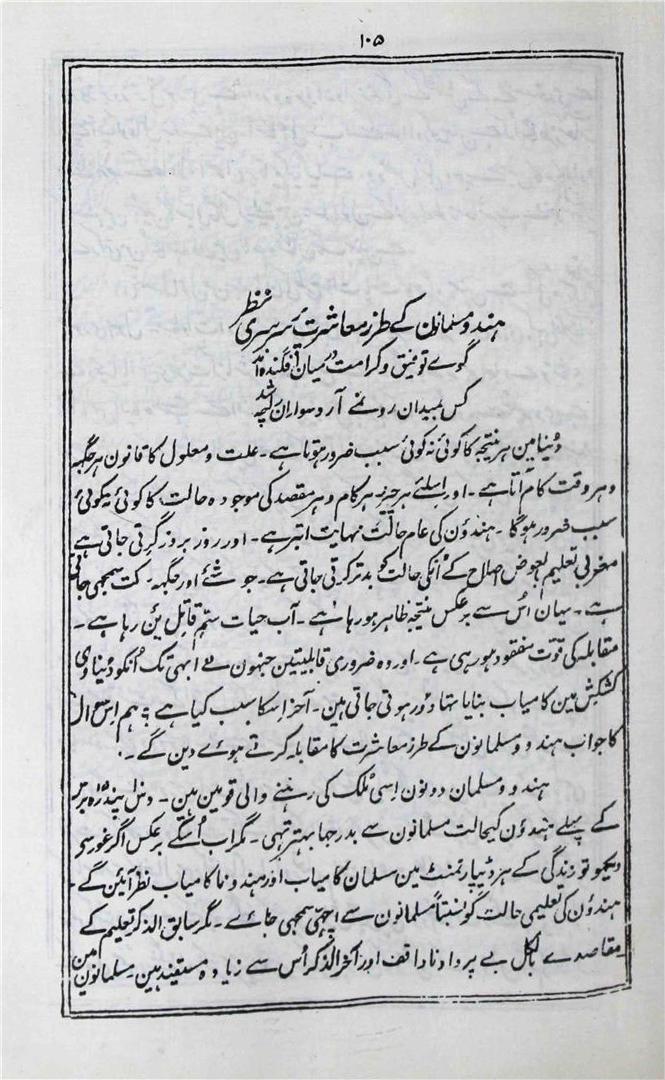 ۱۰۵
ہندو مسلمانون کے طرز معاشرت پر سرسری نظر
گوے توفیق و کرامت درمیان افگندہ اند
کس بمیدان روئے آرد سواران را چہ شد
دُنیا مین ہر نتیجہ کا کوئی نہ کوئی سبب ضرور ہوتا ہے۔ علت و معلول کا قانون ہر جگہہ
و ہر وقت کام آتا ہے۔ اور اسلئے ہر جزہر کام و ہر مقصد کی موجودہ حالت کا کوئی نیکوئی
سبب ضرور ہوگا۔ ہندؤن کی عام حالت نہایت ابتر ہے۔ اور روز بروز گرتی جاتی ہے
مغربی تعلیم بعوض اصلاح کے اُنکی حالت کو بدتر کرتی جاتی ہے۔ جو شئے اور جگہہ برکت سمجھی جاتی
ہے۔ یہان اُس سے برعکس نتیجہ ظاہر ہو رہا ہے۔ آب حیات سم قاتل بن رہا ہے۔
مقابلہ کی قوّت مفقود ہو رہی ہے۔ اور وہ ضروری قابلیتین جنہون نے ابہی تک اُنکو دُنیاوی
کشمکش مین کامیاب بنایا تہا دُور ہوتی جاتی ہین۔ آخر اِسکا سبب کیا ہے؟ ہم اس سوال
کا جواب ہندو و مسلمانون کے طرز معاشرت کا مقابلہ کرتے ہوئے دین گے۔
ہندو و مسلمان دونون اِسی مُلک کی رہنے والی قومین ہین۔ دس پندرہ برس
کے پہلے ہندؤن کیحالت مسلمانون سے بدرجہا بہتر تہی۔ مگر اب اُسکے برعکس اگر غور سے
دیکہو تو زندگی کے ہر ڈیپارٹمنٹ مین مسلمان کامیاب اور ہندو نا کامیاب نظر آئین گے۔
ہندؤن کی تعلیمی حالت گو نسبتاً مسلمانون سے اچہی سمجہی جائے۔ مگر سابق الذکر تعلیم کے
مقاصد سے بالکل بے پروا و ناواقف اور آخر الذکر اُس سے زیادہ مستفید ہین۔ مسلمانون مین